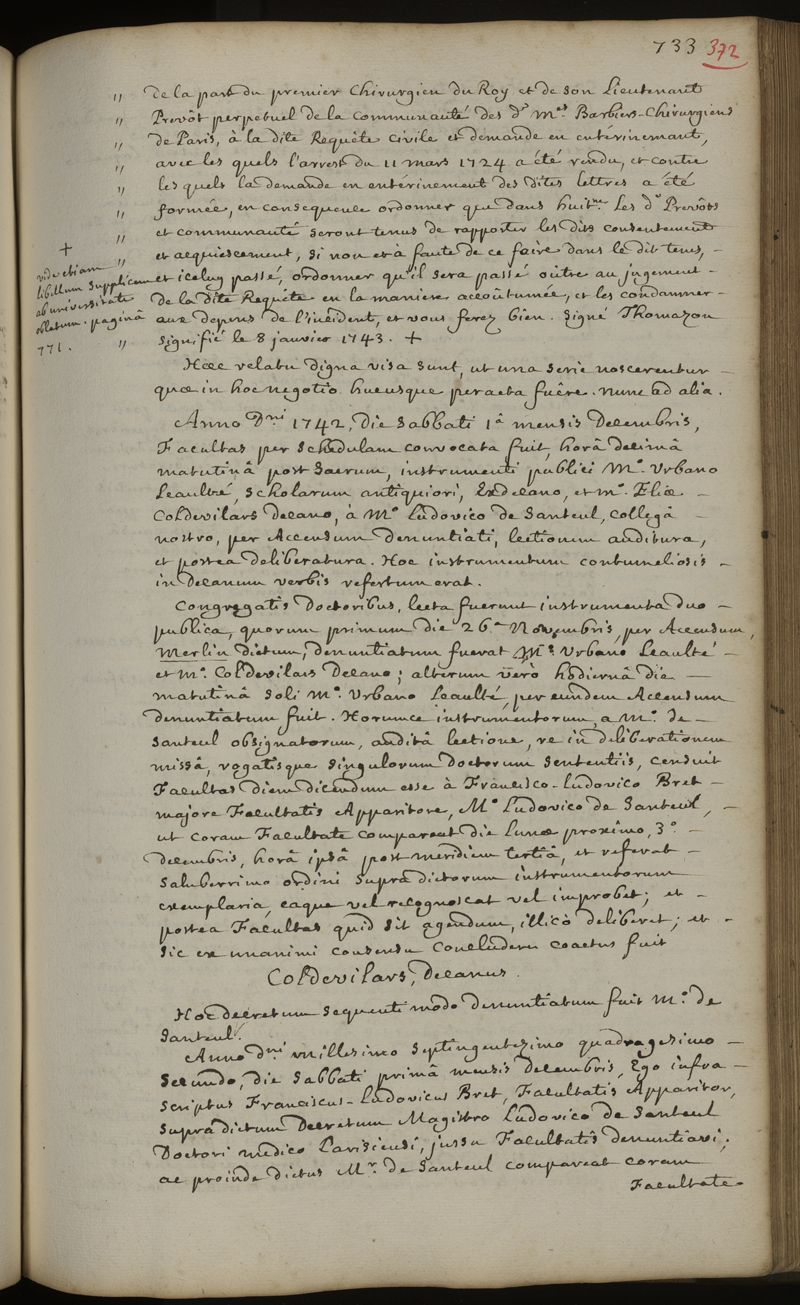 733 372
" de la part du premier Chirurgien du Roy et de son Lieutenant
" Prevôt perpetuel de la Communauté des d.s M.es Barbiers-Chirurgiens
" de Paris, à la dite Requête civile et demande en entérinement,
" avec les quels l'arrest du 11 mars 1724 a été rendu, et contre
" les quels la demande en entérinement des dites lettres a été
" formée, en consequence ordonner que dans huit.ne les d.s Prevôts
" et communauté seront tenus de rapporter les dits consentement
" et acquiescement, si non et à faute de ce faire dans le dit tems, -
et iceluy passé, ordonner qu'il sera passé oûtre au jugement -
de la dite Requête en la maniere accoûtumée, et les condamner -
aux depens de l'incident, et vous ferez bien. Signé Thomazon
" signifié le 8 janvier 1743. +
+
vide etiam
libellum supplicem
ab universitate
oblatum. paginâ
771.
Haec relatu digna visa sunt, ut una serie noscerentur -
quae in hoc negotio hucusque peracta fuêre. nunc ad alia.
Anno D.ni 1742, Die Sabbati 1â mensis Decembris,
Facultas per Schedulam convocata fuit, horâ decimâ
matutinâ post Sacrum, instrumenti publici M.o Urbano
Leaulté, Scholarum antiquiori, Exdecano, et m.o Eliae -
Coldevilars Decano, à M.o Ludovico de Santeul, Collegâ -
nostro, per Accensum denuntiati, lectionem auditura,
et postea deliberatura. Hoc instrumentum contumeliosis -
in Decanum verbis refertum erat.
Congregatis Doctoribus, lecta fuerunt instrumenta duo -
publica, quorum primum die 26a Novembris, per Accensum,
Merlin dictum, denuntiatum fuerat M.o Urbano Leaulté -
et M.o Coldevilars Decano; alterum verò hodiernâ die -
matutinâ soli M.o Urbano Leaulté, per eundem Accensum
denuntiatum fuit. Horumce instrumentorum, a M.o de -
Santeul obsignatorum, auditâ lectione, re in deliberationem
missâ, rogatisque singulorum Doctorum sententiis, censuit
Facultas diem dicendum esse à Francisco-Ludovico Bret -
majore Facultatis Apparitore, M.o Ludovico de Santeul, -
ut coram Facultate compareat die Lunae proximo, 3o -
decembris, horâ ipsâ post meridiem tertiâ, et referat -
Saluberrimo ordini supra dictorum instrumentorum
exemplaria, eaque vel recognoscat vel improbet; et -
postea Facultas quid sit agendum, illicò deliberet; et -
sic ex unanimi consensu concludere coactus fuit
Coldevilars, Decanus.
Hoc decretum sequenti modo denuntiatum fuit M.o de
Santeul.
Anno d.ni millesimo septingentesimo quadragesimo -
secundo, die Sabbati primâ mensis Decembris, Ego infra -
scriptus Franciscus-Ludovicus Bret, Facultatis Apparitor,
supra dictum Decretum Magistro Ludovico de Santeul
Doctori medico Parisiensi, jussu Facultatis denuntiavi;
ac proinde dictus M.r de Santeul compareat coram
Facultate.